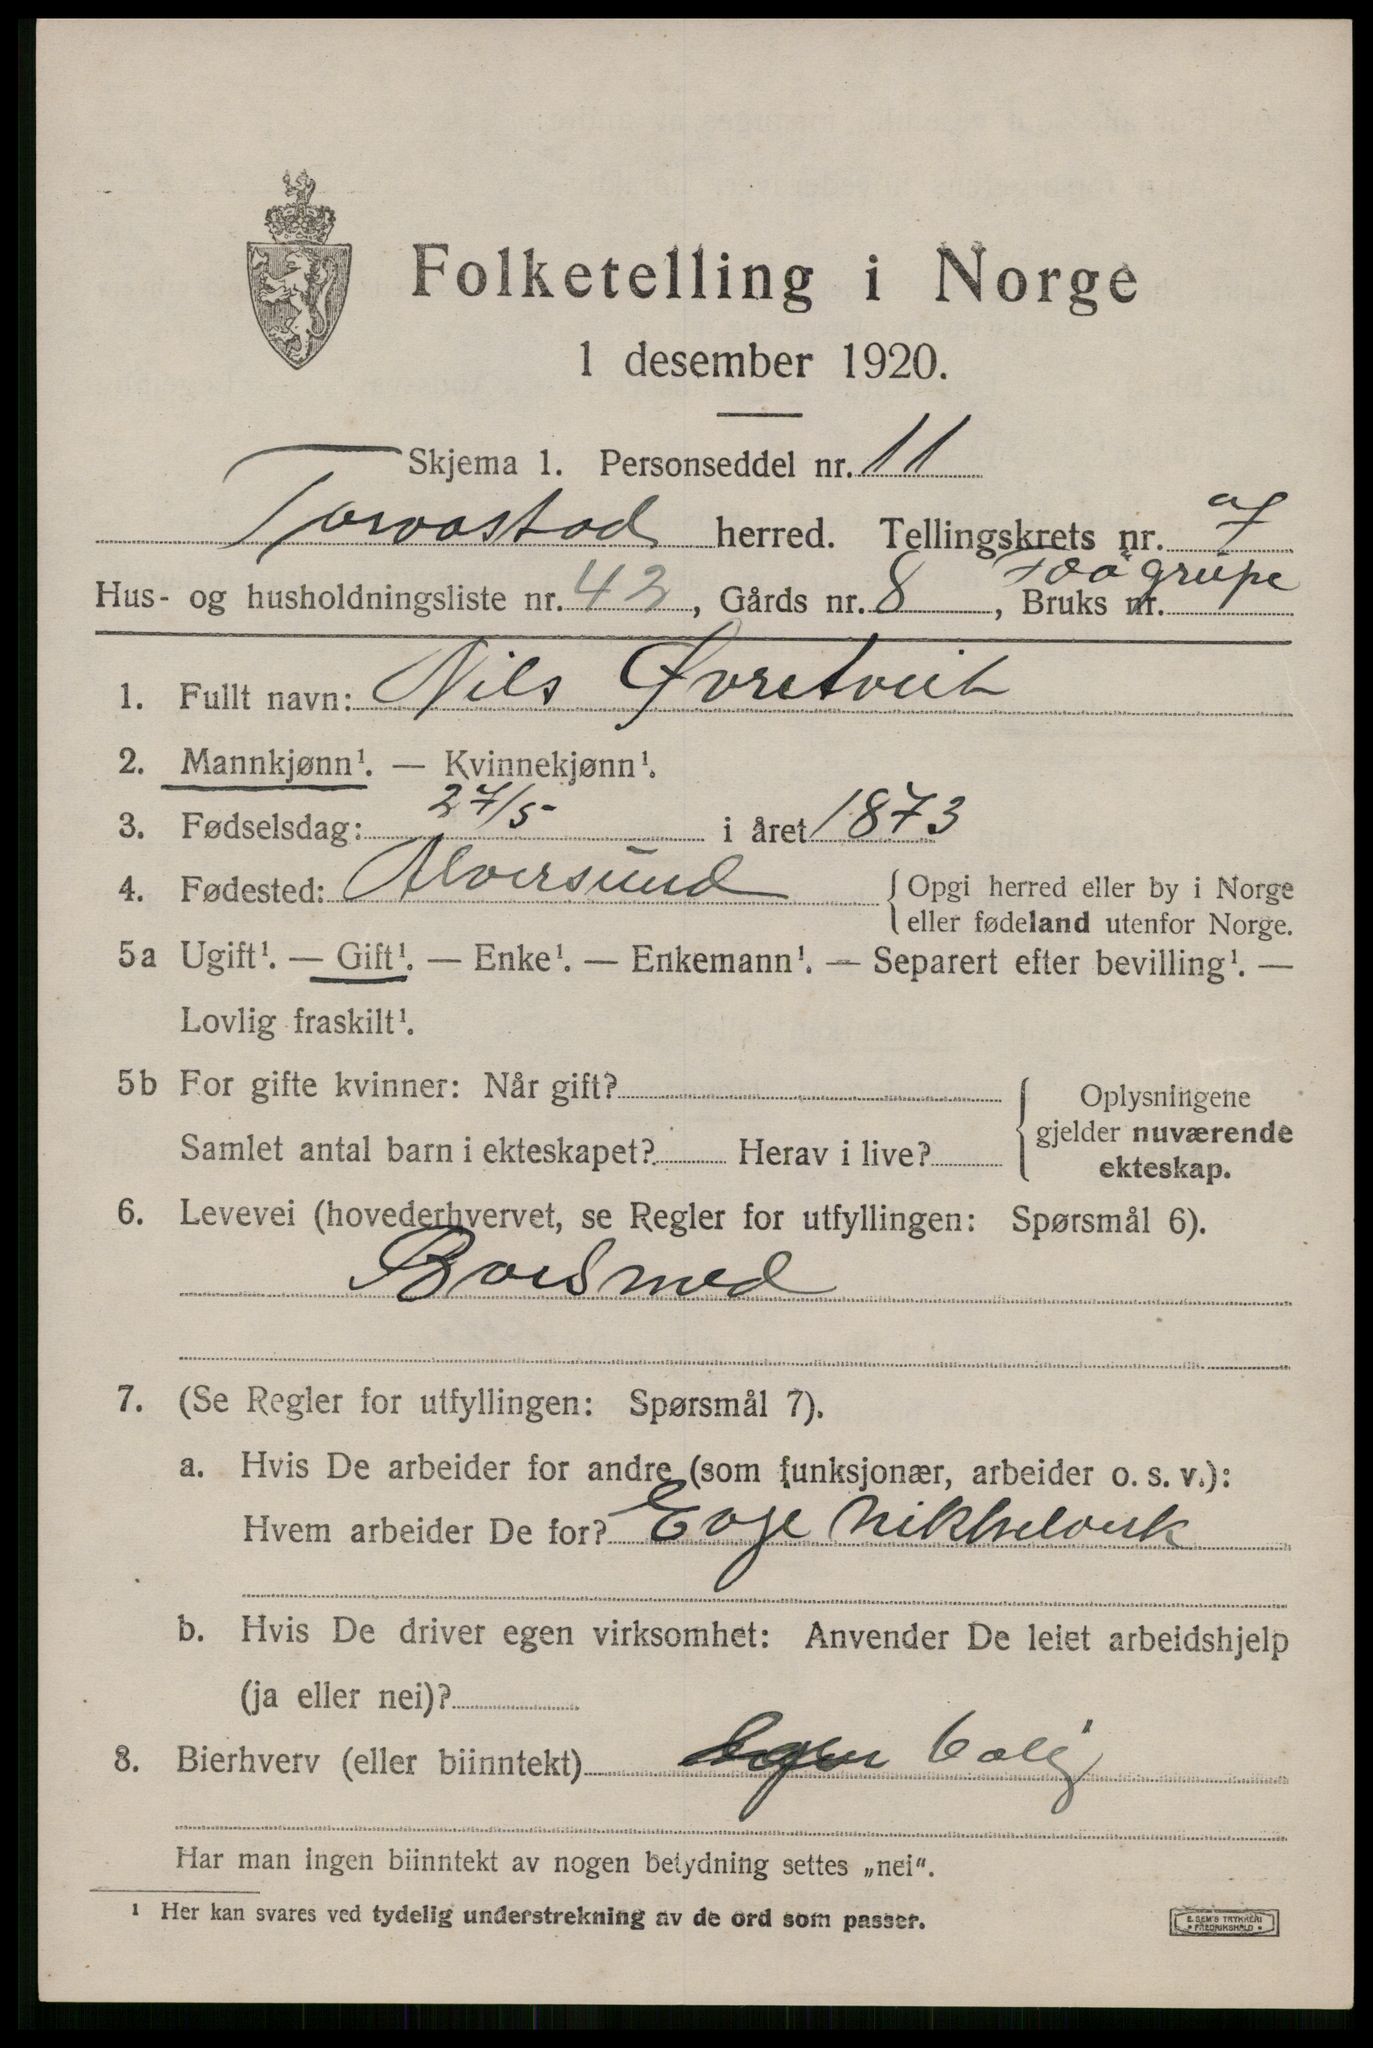 Folketelling i Norge
1 desember 1920.
Skjema 1. Personseddel nr. 11
Torvastad herred. Tellingskrets nr. 7
Hus- og husholdningsliste nr. 42, Gårds nr. 8, Bruks nr.
1. Fullt navn: Nils Øvretveit
2. Mannkjønn¹. — Kvinnekjønn¹.
3. Fødselsdag: 27/5 i året 1873
4. Fødested: Alversund { Opgi herred eller by i Norge
eller fødeland utenfor Norge.
5a Ugift¹. — Gift¹. — Enke¹. — Enkemann¹. — Separert efter bevilling¹. —
Lovlig fraskilt¹.
5b For gifte kvinner: Når gift?
Samlet antal barn i ekteskapet? Herav i live?
Oplysningene
gjelder nuværende
ekteskap.
6. Levevei (hovederhvervet, se Regler for utfyllingen: Spørsmål 6).
7. (Se Regler for utfyllingen: Spørsmål 7).
a. Hvis De arbeider for andre (som funksjonær, arbeider o. s. v.):
Hvem arbeider De for? Evje Nikkelverk
b. Hvis De driver egen virksomhet: Anvender De leiet arbeidshjelp
(ja eller nei)?
8. Bierhverv (eller biinntekt) bolig
Har man ingen biinntekt av nogen betydning settes „nei“.
¹ Her kan svares ved tydelig understrekning av de ord som passer.
E. SEM'S TRYKKERI
FREDRIKSHALD